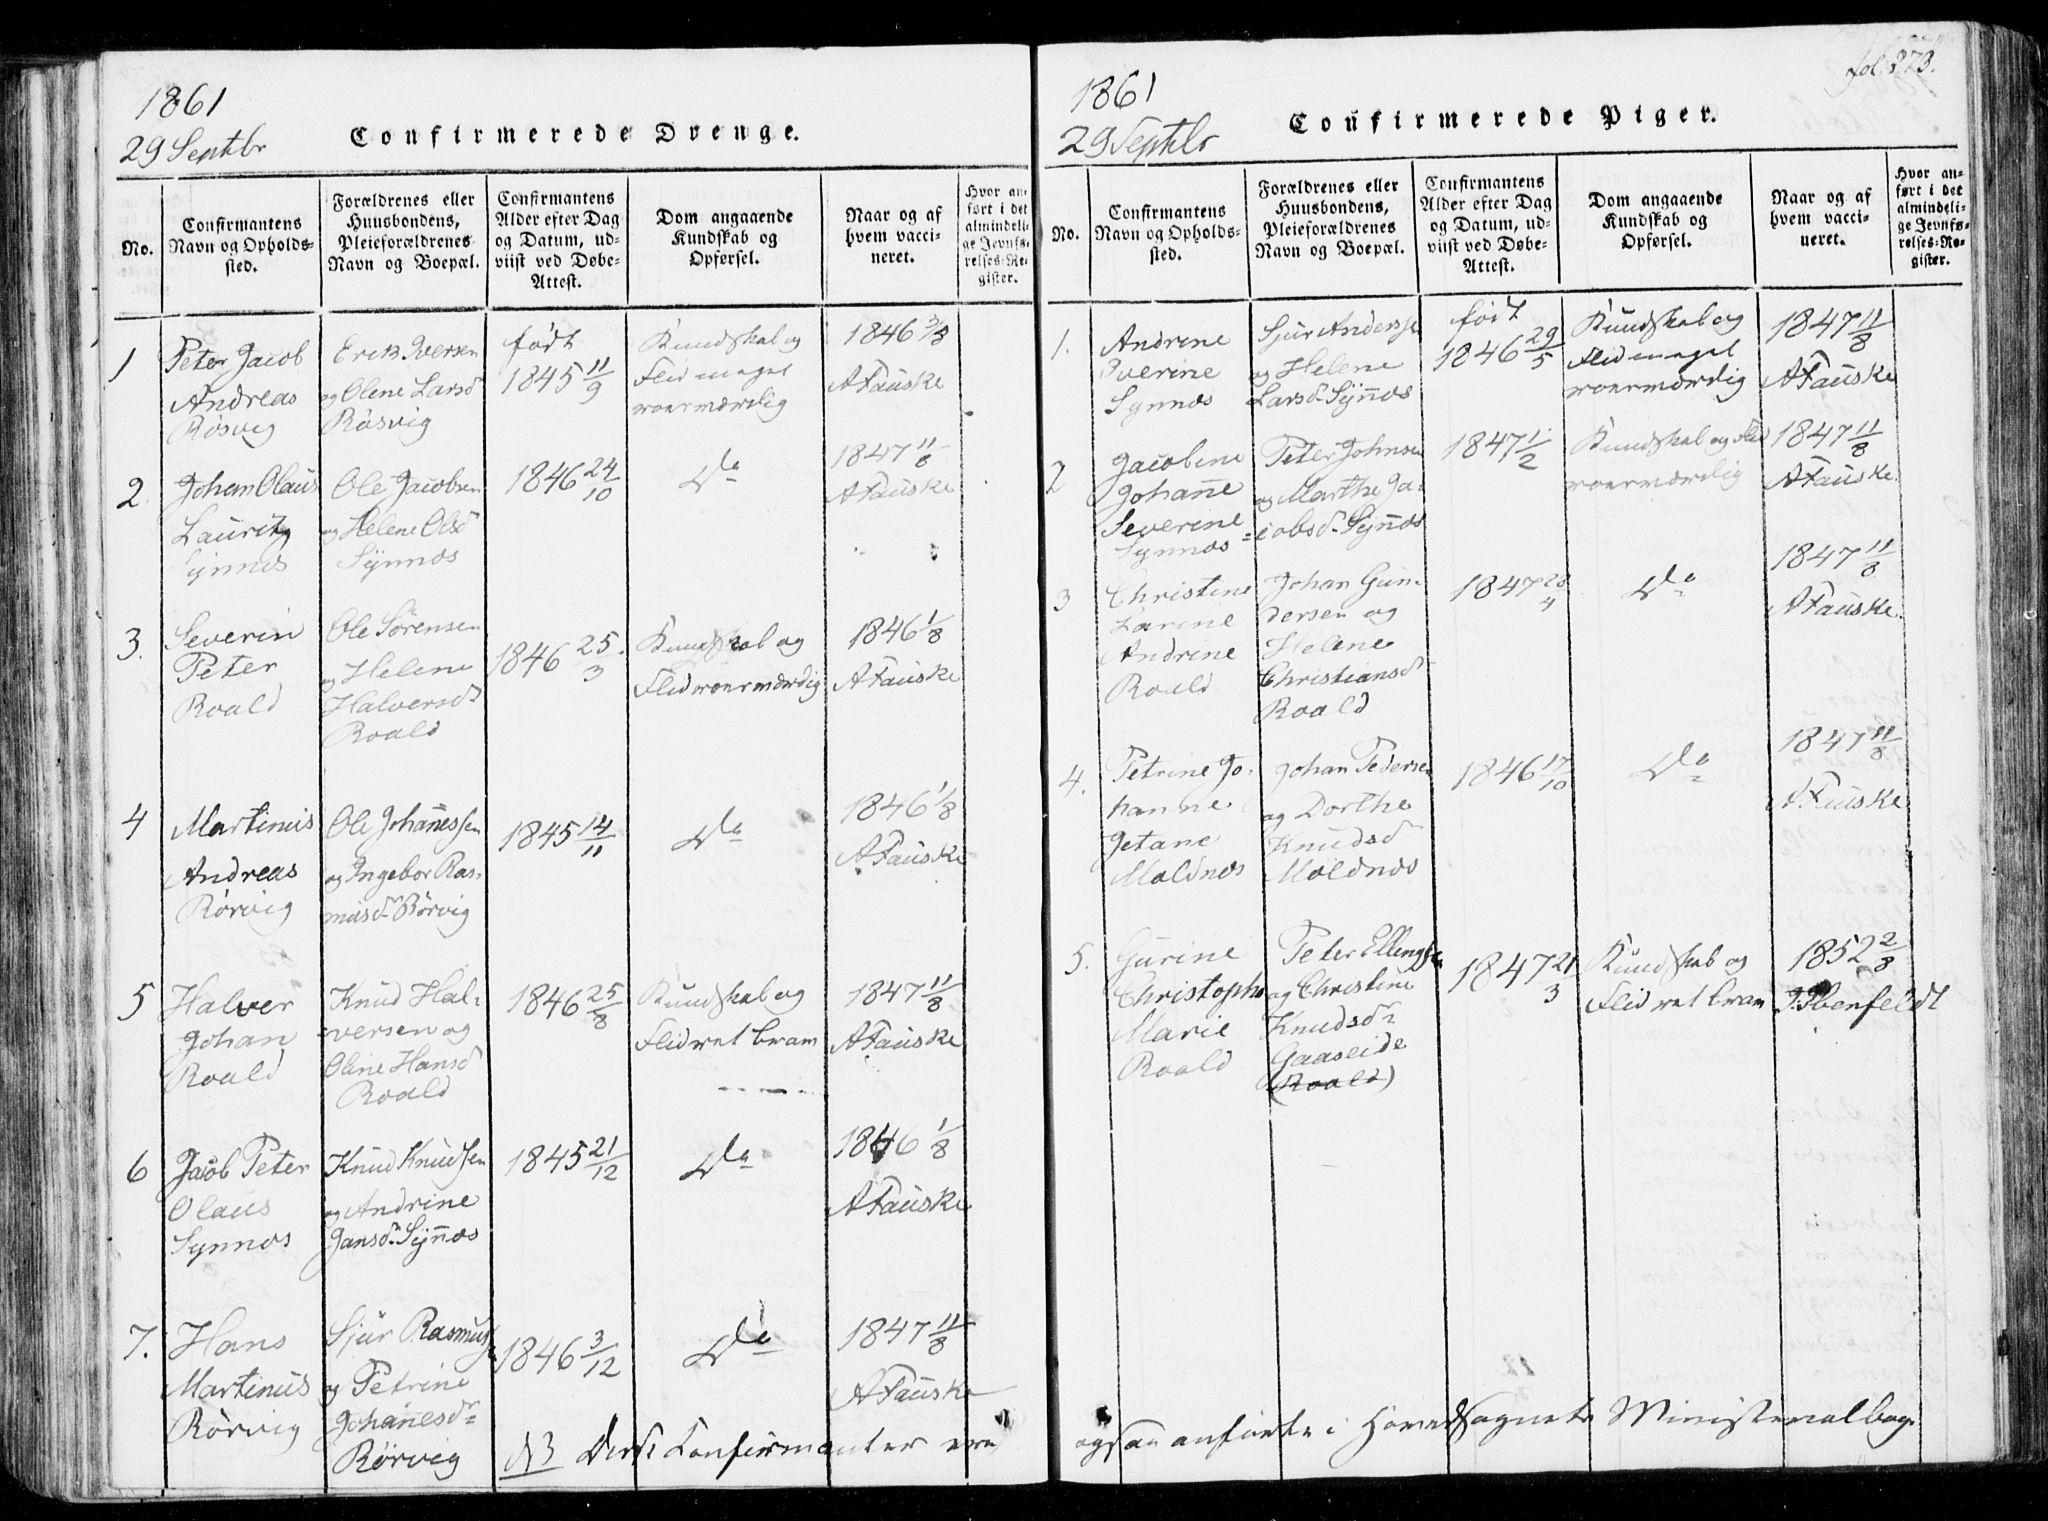 1861
29 Septbr
Confirmerede Drenge.
No.
Confirmantens
Navn og Opholds-
sted.
Forældrenes eller
Huusbondens,
Pleieforældrenes
Navn og Boepæl.
Confirmantens
Alder efter Dag
og Datum, ud-
viist ved Døbe-
Attest.
Dom angaaende
Kundskab og
Opførsel.
Naar og af
hvem vacci-
neret.
Hvor an-
ført i det
almindeli-
ge Jevnfø-
relses-Re-
gister.
1
Peter Jacob
Andreas
Rösvig
Erik Iversen
og Olene Larsd
Rösvig
født
1845 11/9
Kundskab og
Flid meget
roerværdig
1846 3/8
A Fauske
2.
Johan Olaus
Lauritz
Synnes
Ole Jacobsen
og Helene Olsd
Synnæs
1846 24/10
Do
1847 11/8
A Fauske
3.
Severin
Peter
Roald
Ole Sørensen
og Helene
Halversd
Roald
1846 25/3
Kundskab og
Flid roerværdig
1846 1/8
A Fauske
4
Martinus
Andreas
Rörvig
Ole Johanessen
og Ingebor Ras-
musdr Rörvig
1845 14/11
Do
1846 1/8
A Fauske
5
Halver
Johan
Roald
Knud Hal-
versen og
Oline Hansd
Roald
1846 25/8
Kundskab og
Flid ret bram
1847 11/8
A Fauske
6
Jacob Peter
Olaus
Synnes
Knud Knudsen
og Andrine
Jansd. Synnæs
1845 21/12
Do
1846 1/8
A Fauske
7.
Hans
Martinus
Rørvig
Sjur Rasmuss
og Petrine
Johanesdr
Rörvig
1846 3/12
Do
1847 11/8
A Fauske
NB Disse Confirmanter ere
fol. 273.
1861
29 Septbr
Confirmerede Piger.
No.
Confirmantens
Navn og Opholds-
sted.
Forældrenes eller
Huusbondens,
Pleieforældrenes
Navn og Boepæl.
Confirmantens
Alder efter Dag
og Datum, ud-
viist ved Døbe-
Attest.
Dom angaaende
Kundskab og
Opførsel.
Naar og af
hvem vacci-
neret.
Hvor an-
ført i det
almindeli-
ge Jevnfø-
relses-Re-
gister.
1.
Andrine
Iverine
Synnes
Sjur Anderssen
og Helene
Larsd. Synnæs
født
1846 29/5
Kundskab og
Flid meget
roerværdig
1847 11/8
A Fauske
2
Jacobine
Johanne
Severine
Synnæs
Peter Johnsen
og Marthe Ja-
cobsd. Synnæs
1847 1/2
Kundskab og Flid
roerværdig
1847 11/8
A Fauske.
3
Christine
Larine
Andrine
Roald
Johan Gun-
dersen og
Helene
Christiansd
Roald
1847 28/4
Do
1847 11/8
A Fauske.
4.
Petrine Jo-
hanne
Jetane
Moldnes
Johan Pedersen
og Dorthe
Knudsd
Moldnæs
1846 17/10
Do
1847 11/8
A Fauske
5.
Gurine
Christopha
Marie
Roald
Peter Ellingsen
og Christine
Knudsdr
Gaaseide
(Roald)
1847 21/3
Kundskab og
Flid ret bram
1852 2/8
J. Ibenfeldt
ogsaa anførte i Hovedsognets Ministerialbog.